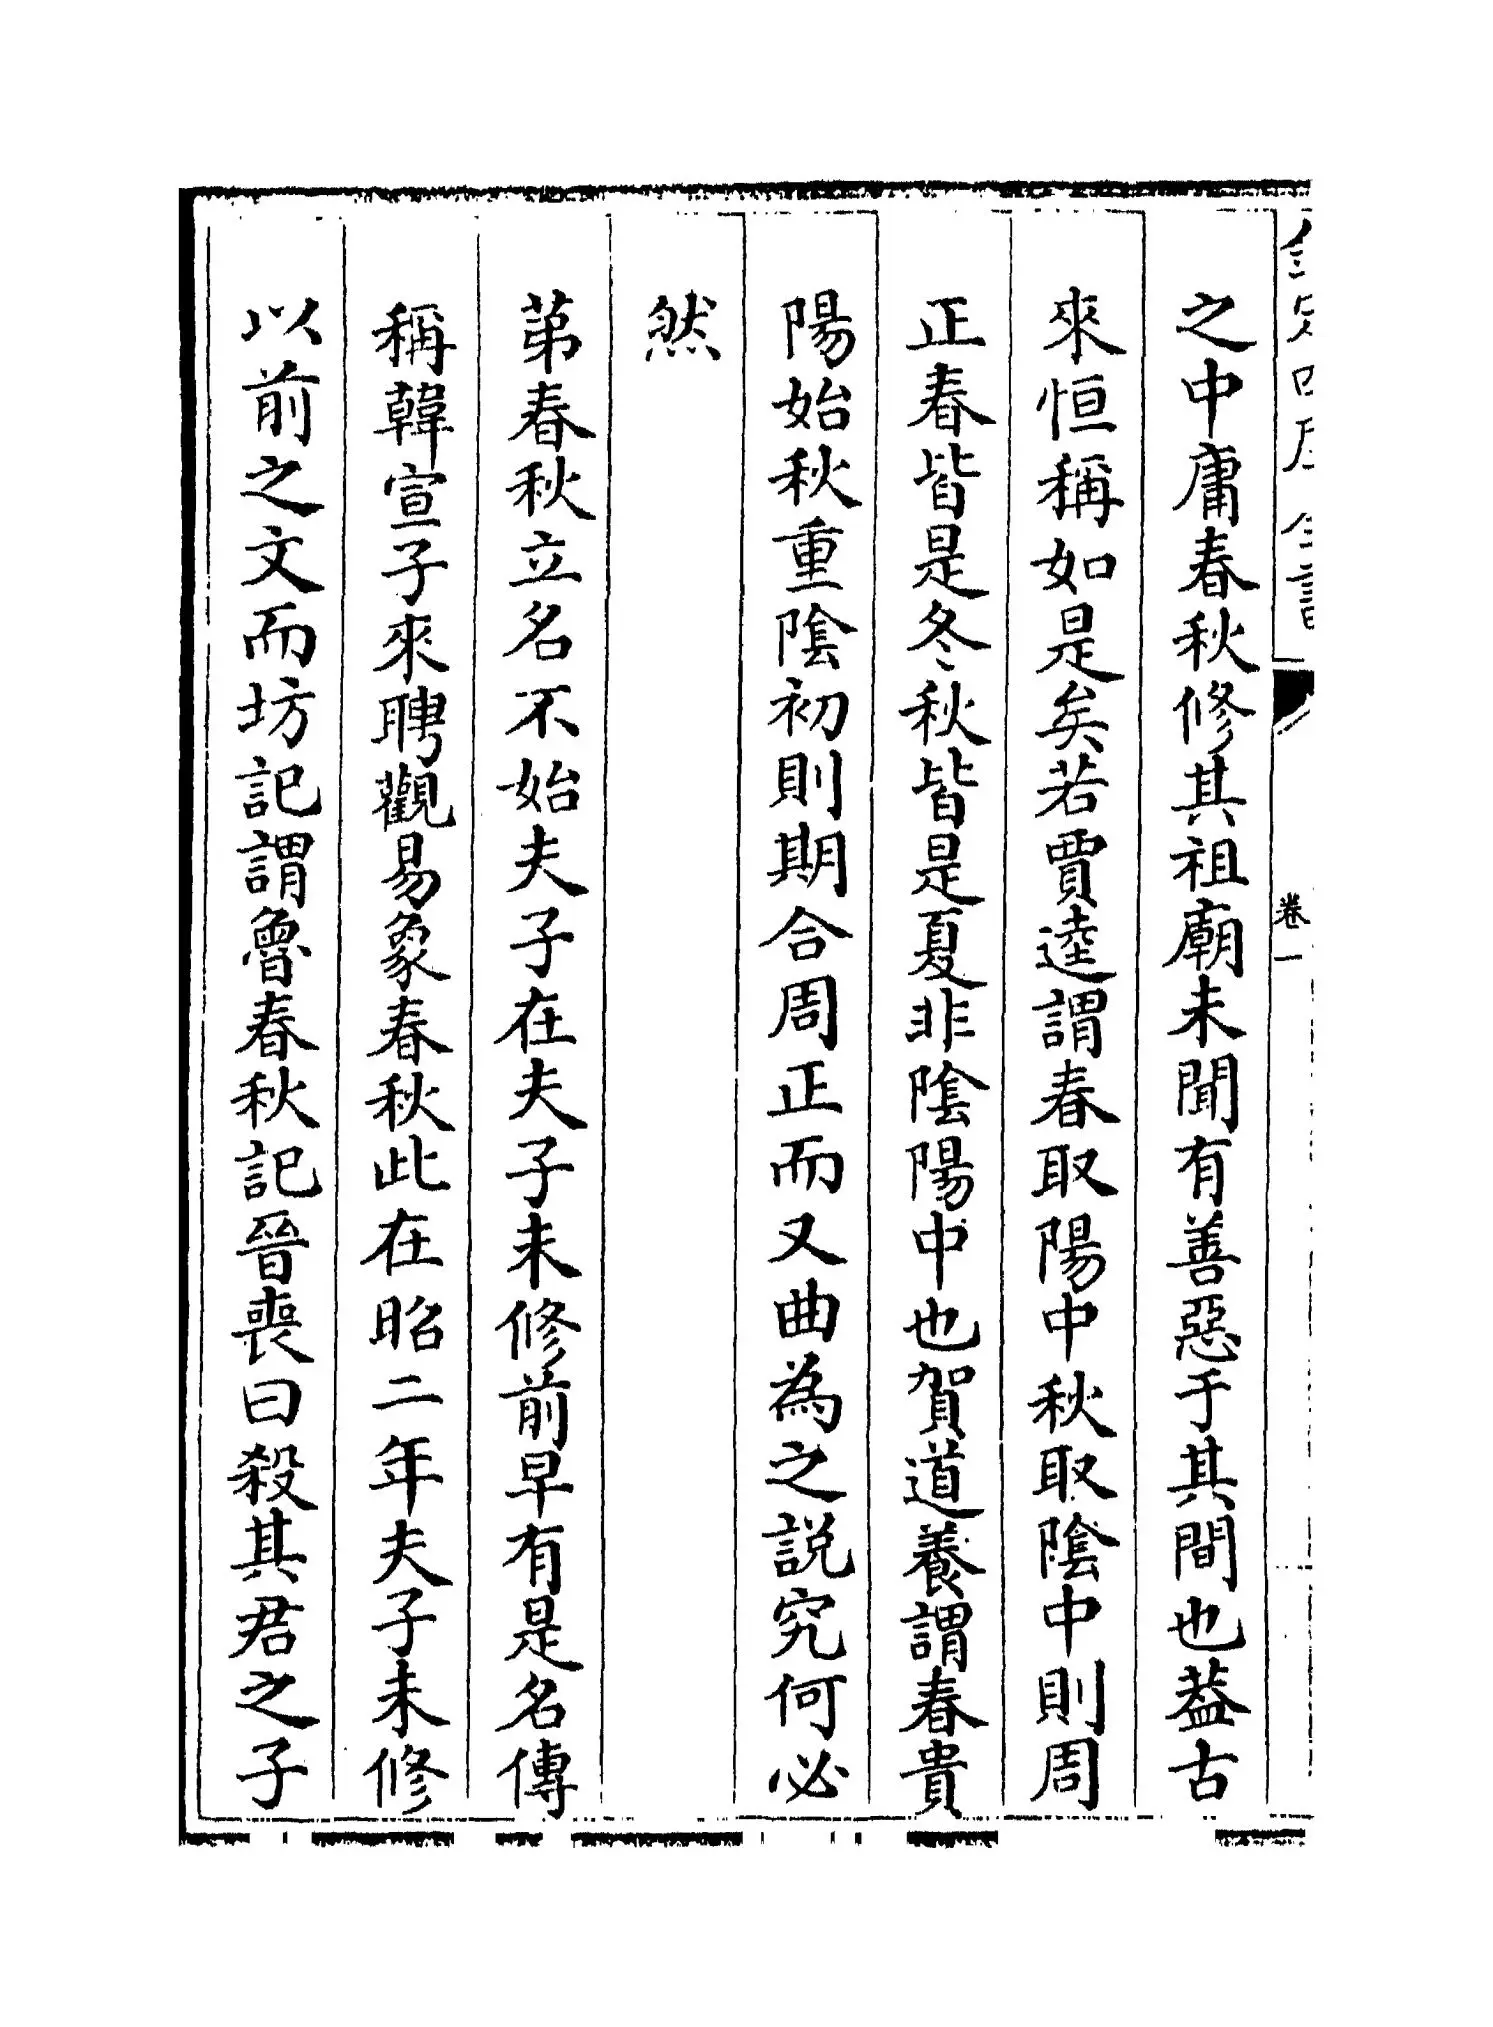 欽定四庫全書
卷一
之中庸春秋修其祖廟未聞有善惡于其間也葢古
來恒稱如是矣若賈逵謂春取陽中秋取陰中則周
正春皆是冬秋皆是夏非陰陽中也賀道養謂春貴
陽始秋重陰初則期合周正而又曲為之説究何必
然
苐春秋立名不始夫子在夫子未修前早有是名傳
稱韓宣子來聘觀易象春秋此在昭二年夫子未修
以前之文而坊記謂魯春秋記晉喪曰殺其君之子